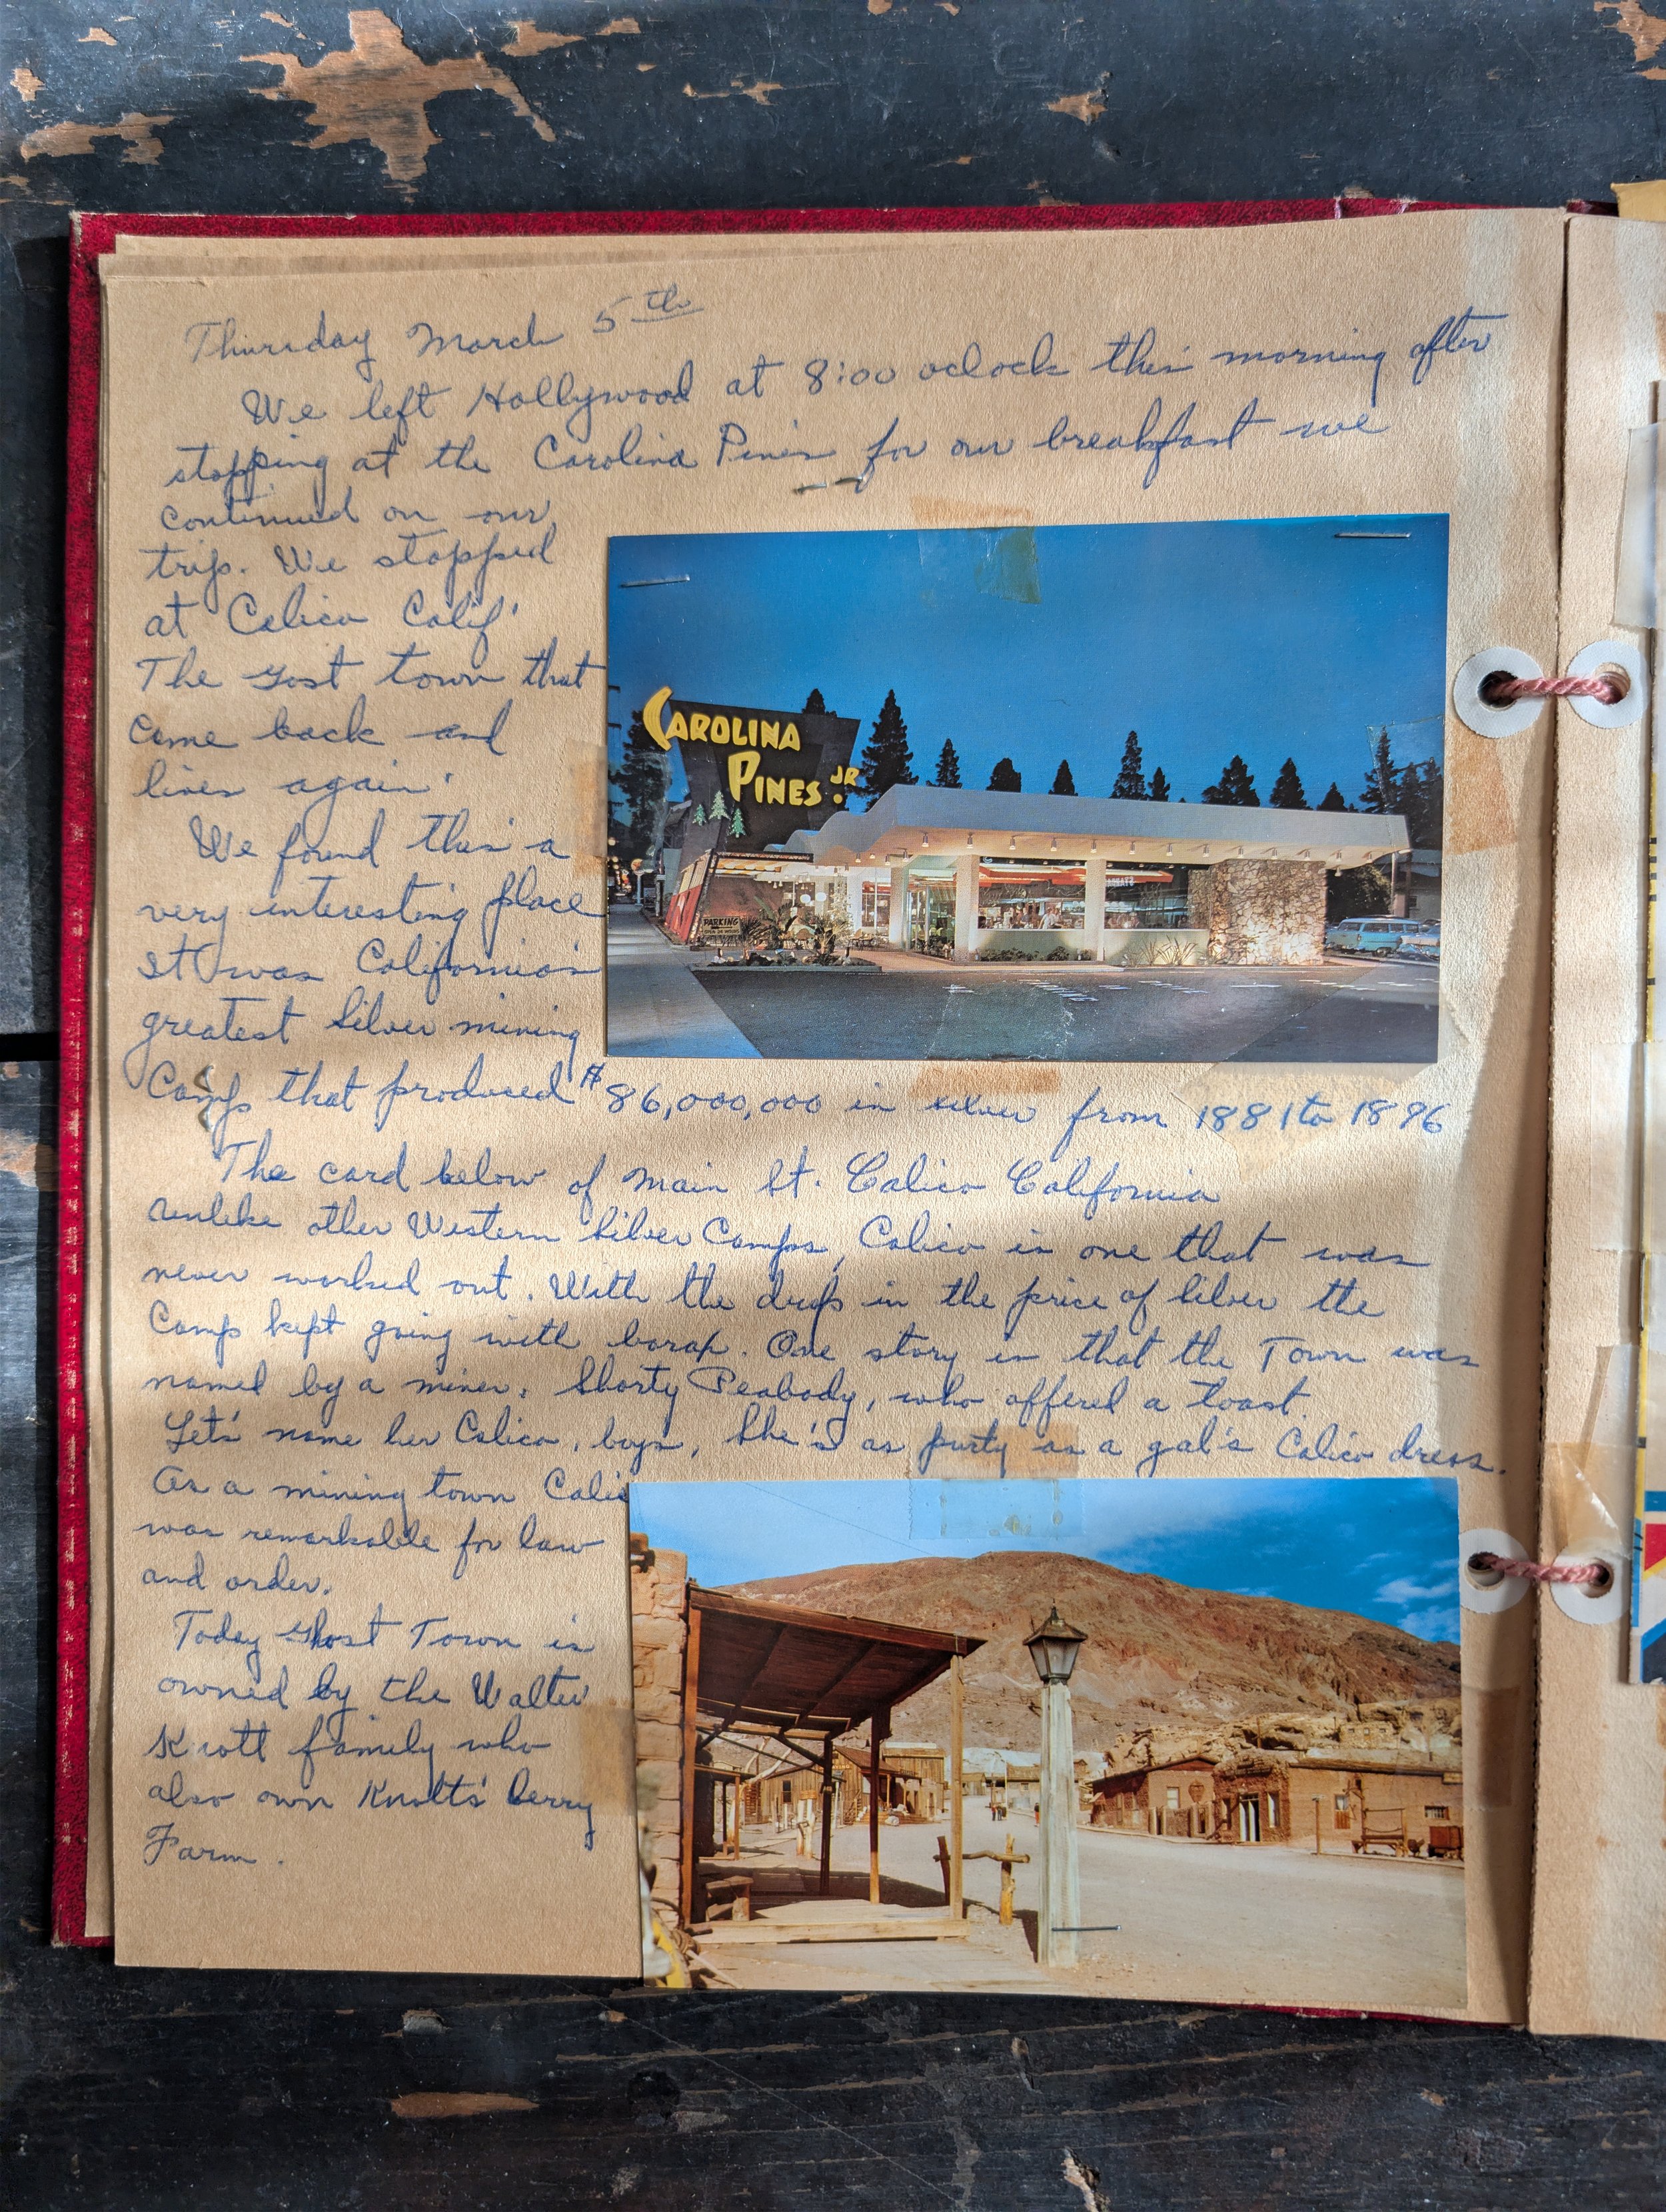 Thursday March 5th
We left Hollywood at 8:00 oclock this morning after
stopping at the Carolina Pines for our breakfast we
continued on our
trip. We stopped
at Calico Calif'
The gost town that
came back and
lives again.
We found this a
very interesting place
It was California's
greatest silver mining
Camp that produced $86,000,000 in silver from 1881 to 1896
The card below of main St. Calico California
unlike other Western Silver Camps, Calico is one that was
never worked out. With the drop in the price of Silver the
Camp kept going with borax. One story is that the Town was
named by a miner, Shorty Peabody, who offered a toast.
Let's name her Calico, boys, She's as purty as a gal's Calico dress.
As a mining town Calic
was remarkable for law
and order.
Today Ghost Town is
owned by the Walter
Knott family who
also own Knott's berry
Farm.
CAROLINA
PINES JR.
PARKING